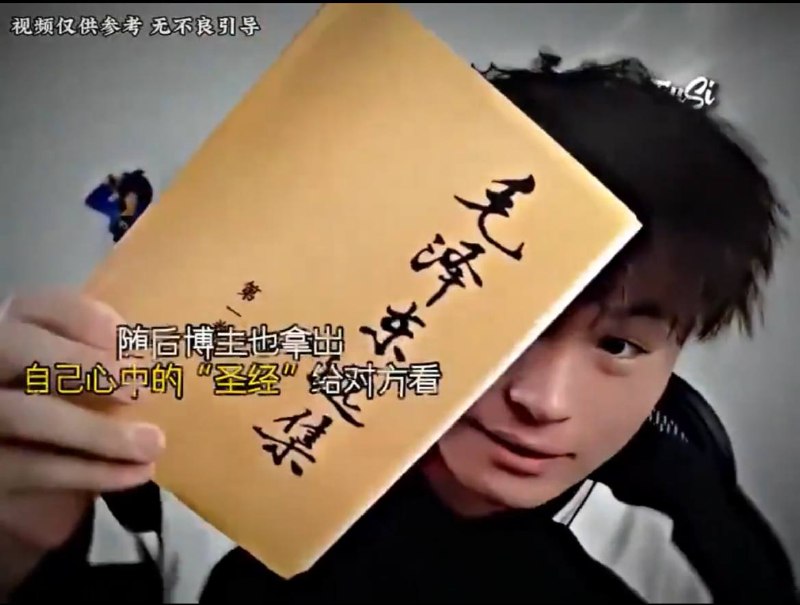 视频仅供参考 无不良引导
毛泽东选集
第一卷
随后博主也拿出
自己心中的“圣经”给对方看